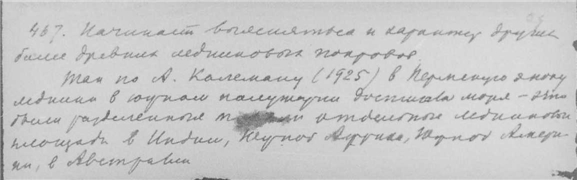 467. Начинает выясняться и характер других
более древних ледниковых покровов.
Так по А. Колеману (1925) в Пермскую эпоху
ледники в южном полушарии достигали моря – это
были разделенные отдельные ледниковые
площади в Индии, Южной Африке, Южной Амери-
ки, в Австралии